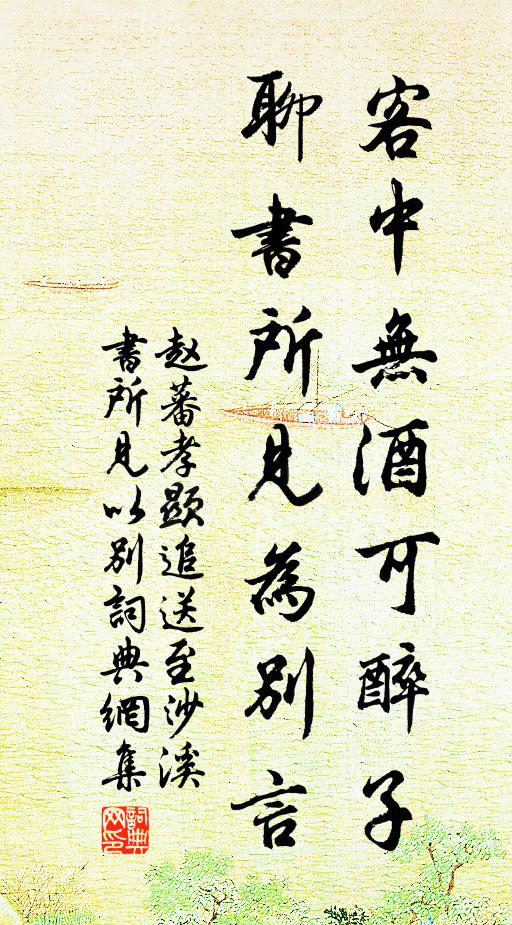 客中無酒可醉子
聊書所見為別言
赵蕃孝顯追送至沙溪
書所見以别詞典網集
詞典網印